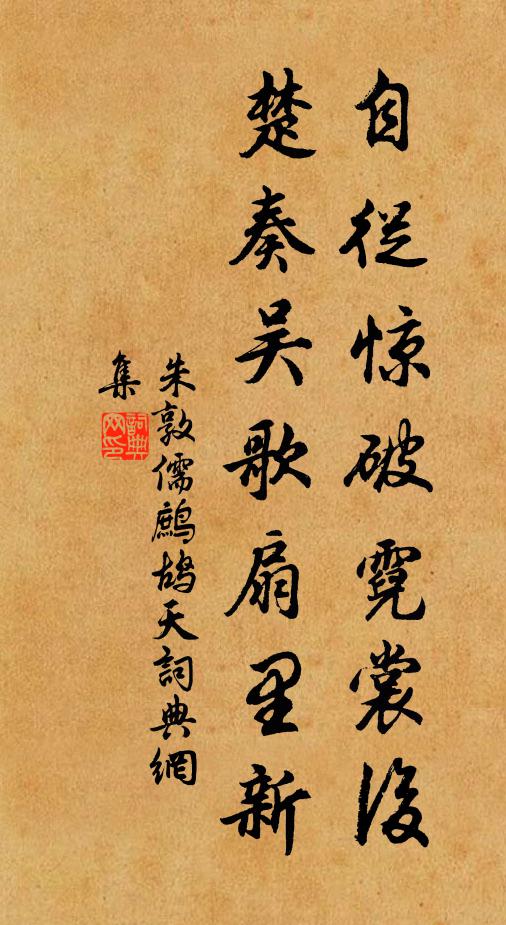 自從惊破霓裳後
楚奏吴歌扇里新
朱敦儒鷓鴣天詞典網
集
詞典
网印